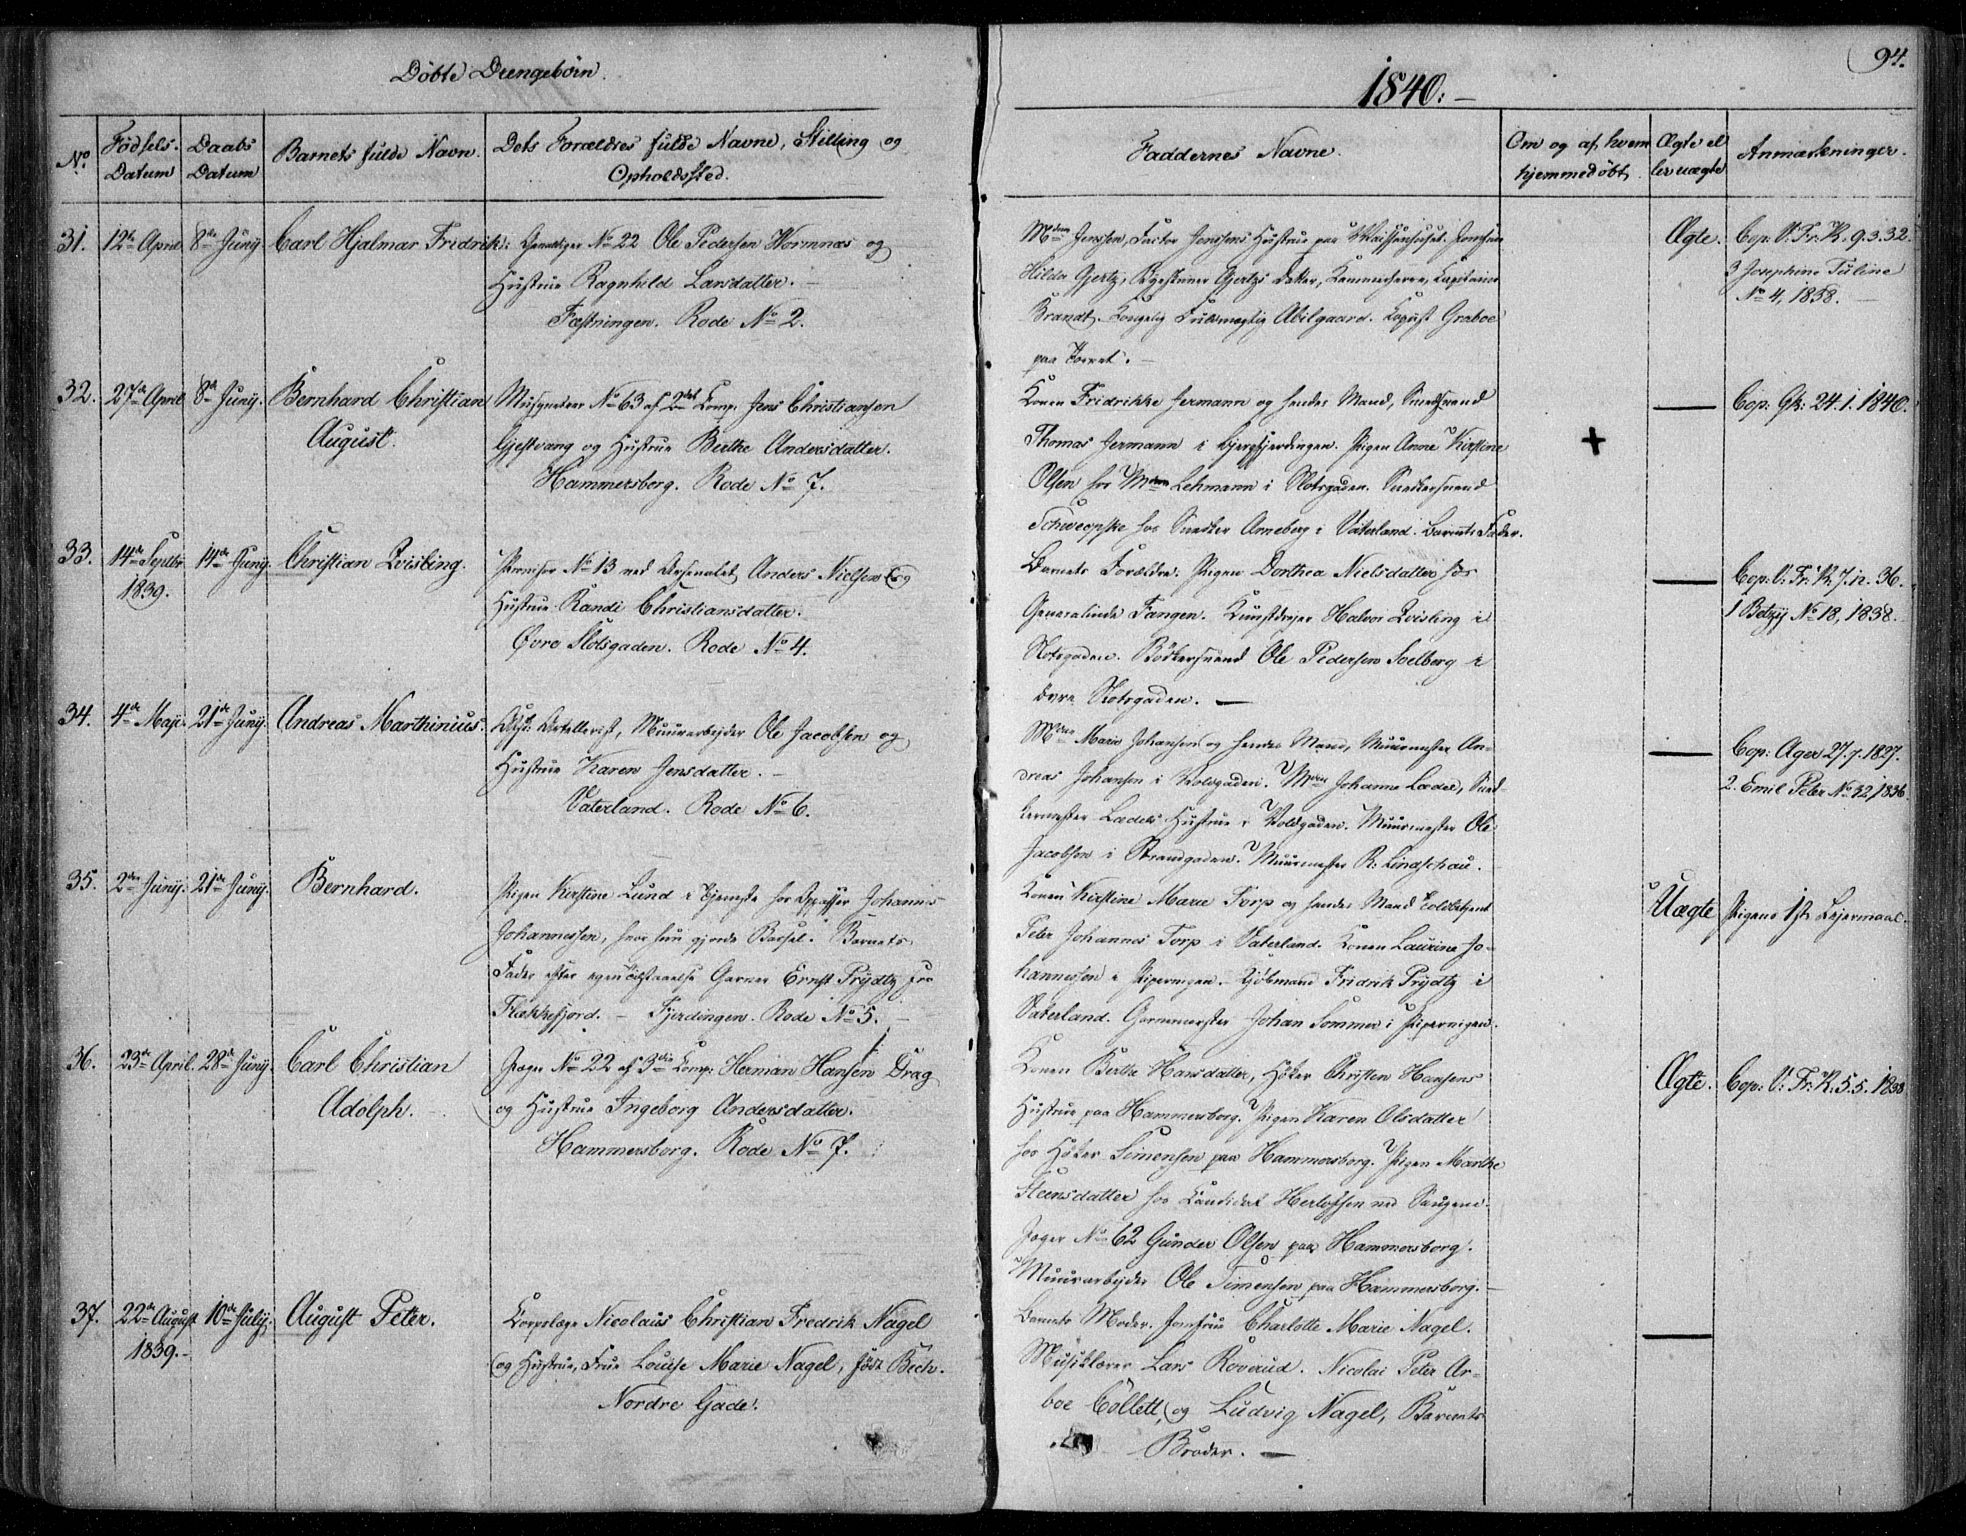 Døbte Drengebørn.
1840.
94.
No
Fødsels-Datum
Daabs Datum
Barnets fulde Navn.
Dets Forældres fulde Navne, Stilling og Opholdssted.
Faddernes Navne.
Om og af hvem hjemmedøbt
Ægte eller uægte
Anmærkninger.
31. 12te April 8de Juny Carl Hjalmar Fridrik: No 22 Ole Pedersen Wormnæs og
Hustrue Ragnhild Larsdatter.
Fæstningen. Rode No 2.
Mdm Jenssen, Factor Jenssens Hustrue paa Waisenhuset. Jomfrue
Hilda Gjertz, Gjertzs Datter, Kammerherre, Kapitaine
Brandt. Fuldmægtig Abilgaard. Graboe
paa Torvet.
Ægte.
Cop: V: Fr: K. 9.3.32.
3 Josephine Tuline
No 4, 1838.
32. 27de April 8de Juny. Bernhard Christian
August.
Musqueteer No 63 af 2det Comp. Jens Christiansen
Gjestvang og Hustrue Berthe Andersdatter.
Hammersborg. Rode No 7.
Konen Fridrikke Hermann og hendes Mand, Smedsvend
Thomas Hermann i Pigen Anne Kirstine
Olsen hos Mdm Lehmann i Slotsgaden. Snedkersvend
Schweopske hos Snedker Arneberg i Vaterland. Barnets Fader.
+
Cop: Gk: 24.1.1840.
33. 14de Septbr 14de Juny. Christian Qvisling.
1839.
No 13 ved Arsenalet Anders Nielsen og
Hustrue Randi Christiansdatter.
Øvre Slotsgaden. Rode No 4.
Barnets Forældre. Pigen Dorthea Nielsdatter hos
Generalinde Fangen. Kunstdrejer Halvor Qvisling i
Slotsgaden. Bødkersvend Ole Pedersen Solberg i
Øvre Slotsgaden.
Cop: V: Fr: K. 7.12.36.
1 Betzy No 18, 1838.
34. 4de Maji. 21de Juny. Andreas Marthinius.
Afsk: Artellerist, Muurarbejder Ole Jacobsen og
Hustrue Karen Jensdatter.
Vaterland. Rode No 6.
Mdm Marie Johansen og hendes Mand, Muurmester An-
dreas Johansen i Voldgaden. Mdm Johanne Lædel, Sned
kermester Lædels Hustrue i Voldgaden. Muurmester Ole
Jacobsen i Strandgaden. Muurmester R: Lindschau.
Cop: Ager 27.7.1827.
2. Emil Peter No 32, 1836.
35. 2den Juny. 21de Juny. Bernhard.
Pigen Kirstine Lund i Tjeneste hos Opasser Johannes
Johannessen, hvor hun gjorde Barsel. Barnets
Fader efter egen Tilstaaelse Garver Ernst Prydtz fra
Flækkefjord. - Fjerdingen. Rode No 5.
Konen Kirstine Marie Torp og hendes Mand Toldbetjent
Peter Johannes Torp i Vaterland. Konen Laurine Jo-
hannessen i Pipervigen. Kjøbmand Fridrik Prydtz i
Vaterland. Garvermester Johan Sommer i Pipervigen.
Uægte
Pigens 1ste Lejermaal.
36. 23de April. 28de Juny. Carl Christian
Adolph.
Jæger No 22 af 3die Comp: Herman Hansen Drag
og Hustrue Ingeborg Andersdatter.
Hammersborg. Rode No 7.
Konen Berthe Hansdatter, Høker Christen Hansens
Hustrue paa Hammersborg. Pigen Karen Olsdatter
hos Høker Simensen paa Hammersborg. Pigen Marthe
Steensdatter hos Candidat Herlofsen ved Saugene.
Jæger No 62 Gunder Olsen paa Hammersborg.
Muurarbejder Ole Simensen paa Hammersborg.
Ægte.
Cop: V: Fr: K. 5.5.1838
37. 22de August 10de July. August Peter.
1839.
Corpslæge Nicolaus Christian Fredrik Nagel
og Hustrue, Frue Louise Marie Nagel, født Bech.
Nordre Gade.
Barnets Moder. Jomfrue Charlotte Marie Nagel.
Musiklærer Lars Roverud. Nicolai Peter Ar-
boe Collett, og Ludvig Nagel, Barnets
Broder.